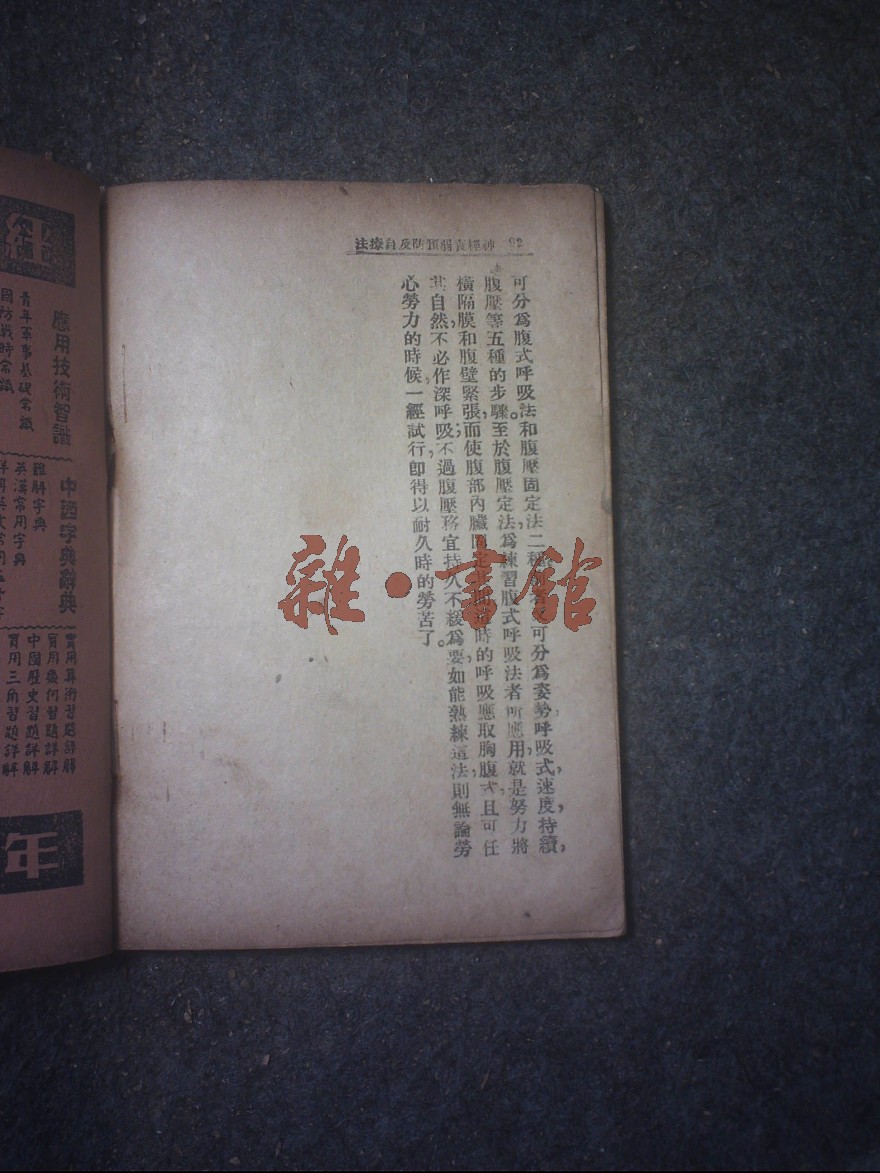 92 神經衰弱預防及自療法
可分爲腹式呼吸法和腹壓固定法二種前者又可分爲姿勢,呼吸式,速度,持續,
腹壓等五種的步驟。至於腹壓定法,爲練習腹式呼吸法者所應用,就是努力將
橫隔膜和腹壁緊張,而使腹部內臟固定;時的呼吸,應取胸腹式,且可任
其自然,不必作深呼吸,不過腹壓務宜持久不緩爲要,如能熟練這法,則無論勞
心勞力的時候,一經試行,即得以耐久時的勞苦了。
雜·書館
應用技術智識
青年軍事基礎常識
國防戰時常識
中國字典辭典
難解字典
英漢常用字典
實用算術習題詳解
實用幾何習題詳解
中國歷史習題詳解
實用三角習題詳解
年